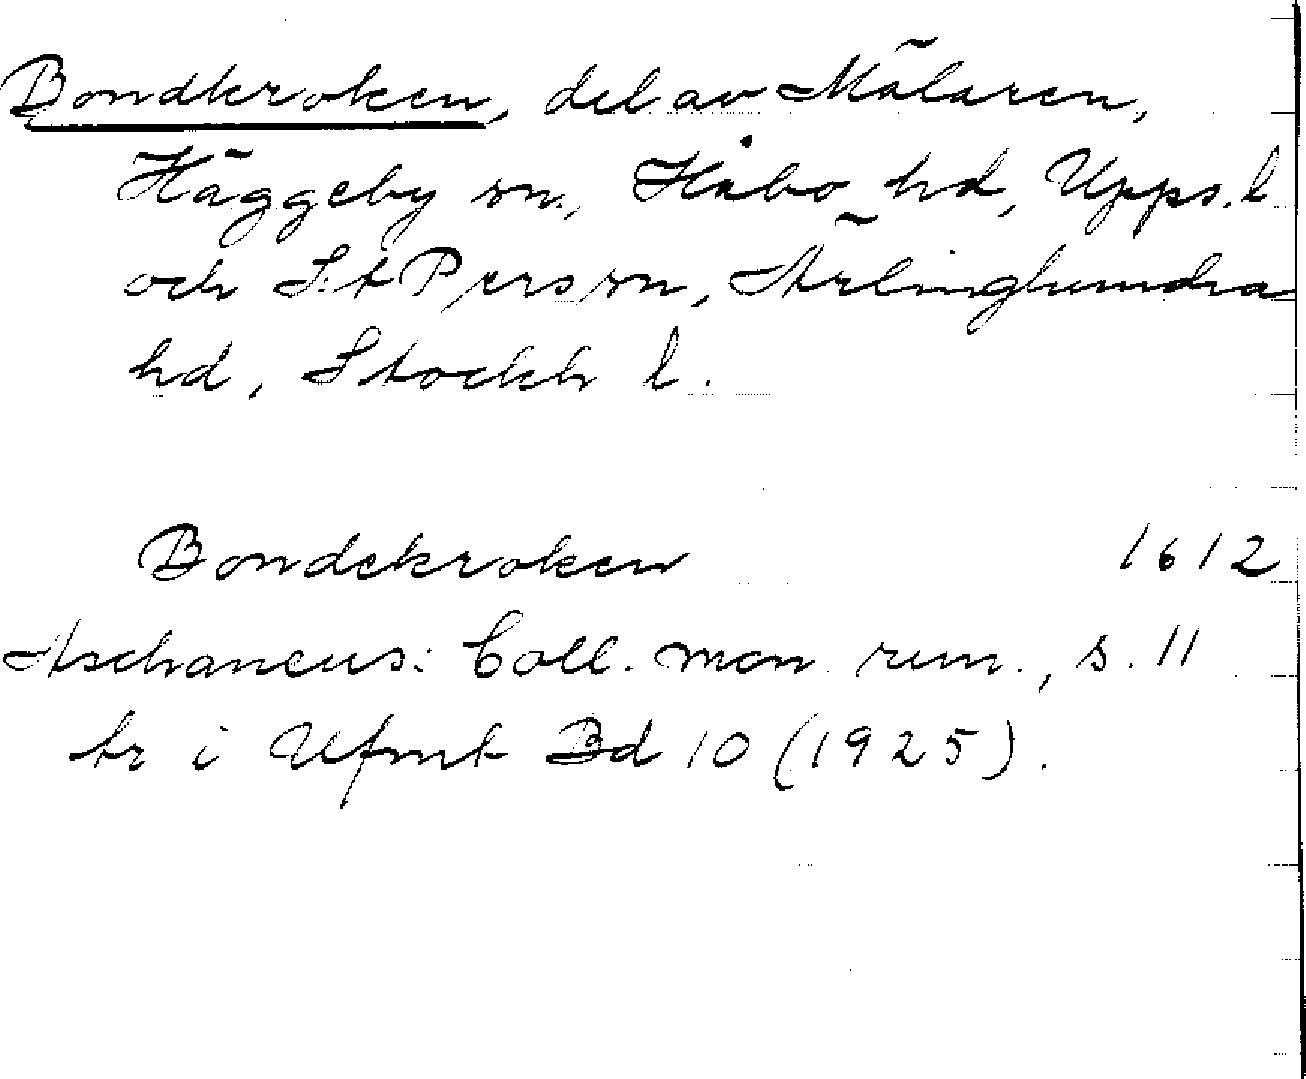 Bondkroken, del av Mälaren,
Häggeby sn., Håbo hd, Upps. l
och S:t Pers sn, Ärlinghundra
hd, Stockh l.
Bondekroken 1612
Aschaneus: Coll. mon. run., s. 11
tr i Ufmt Bd 10 (1925).